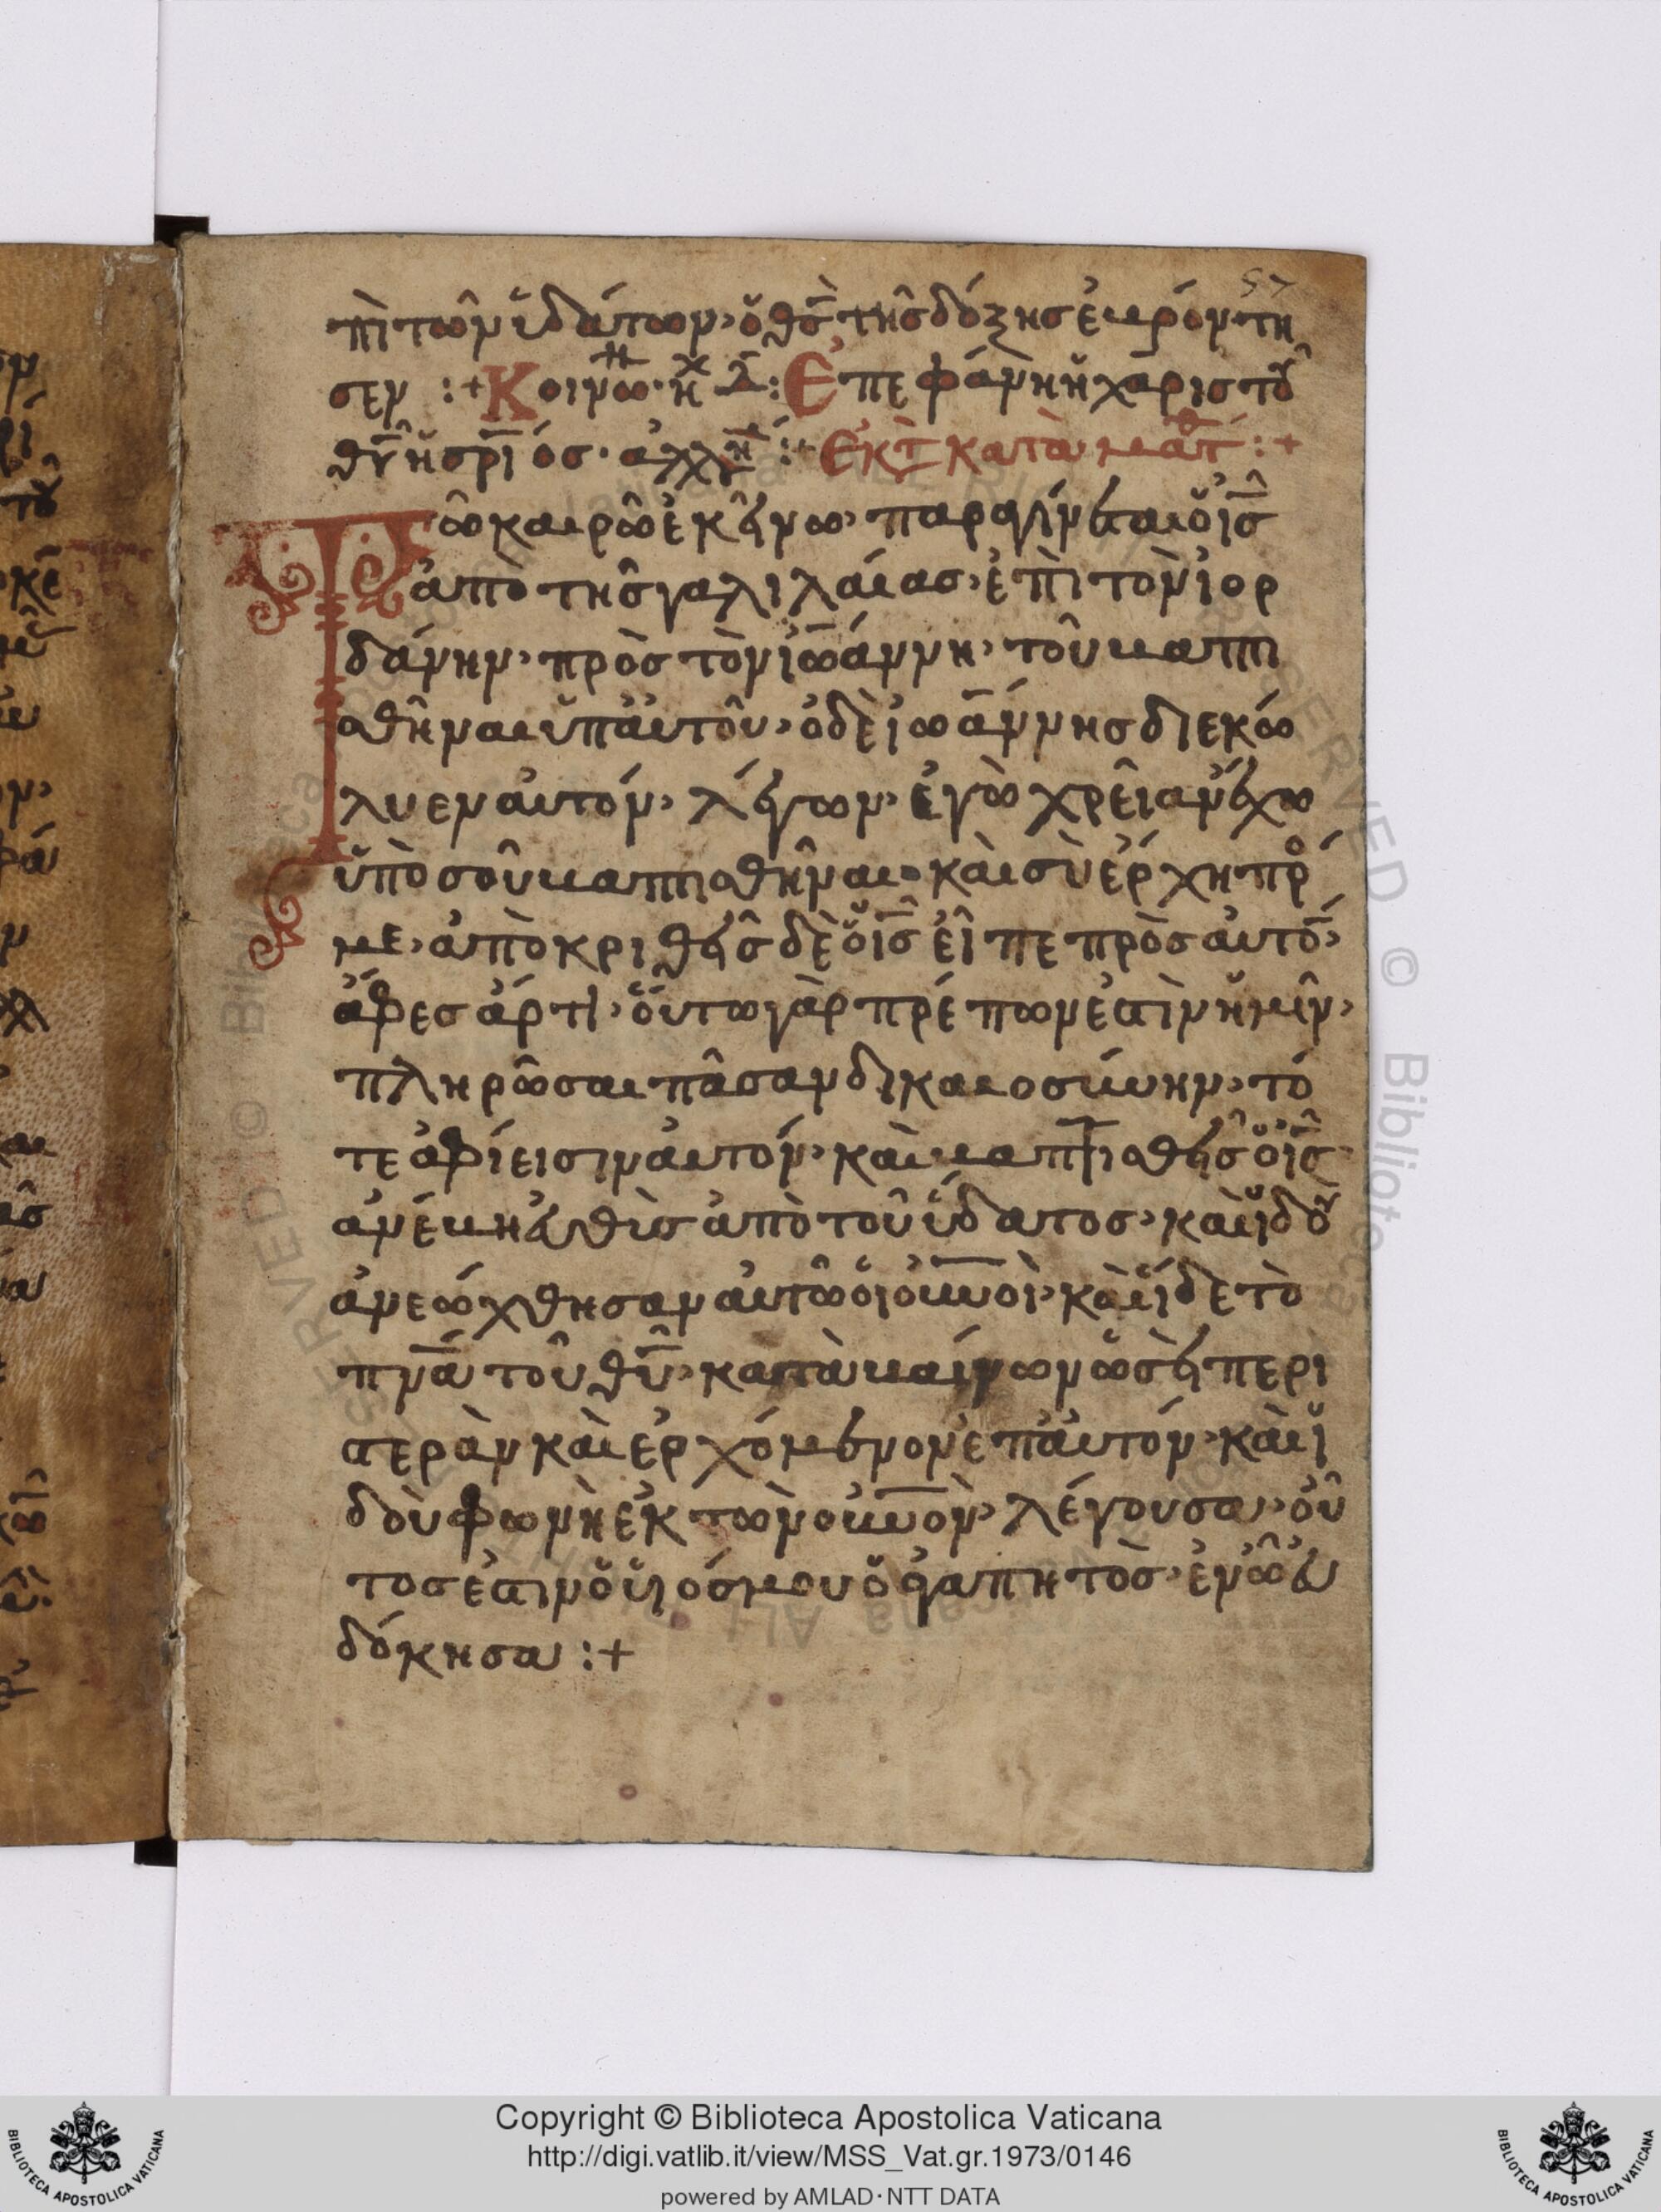 πὶ τῶν ὑδάτων· ὁ θς τῆς δόξης ἐβρόντη
σεν :+ Κοινω· ἠχ δ: Ἐπεφάνη ἡ χάρις τοῦ
θυ ἡ σριος· ἀλλη :+ Ἐκ τ κατὰ ματθ :+
Τῶ καιρῶ ἐκείνω· παραγίνεται ὁ ις
ἀπὸ τῆς γαλιλαίας· ἐπὶ τὸν ἰορ
δάνην· πρὸς τὸν ἰωάννη· τοῦ βαπτι
σθῆναι ὑπ' αὐτοῦ· ὁ δὲ ἰωάννης διεκώ
λυεν αὐτόν· λέγων· ἐγὼ χρεῖαν ἔχω
ὑπὸ σοῦ βαπτισθῆναι· καὶ σὺ ἔρχη πρό
με· ἀπὸκριθεῖς δὲ ὁ ις εἶπε πρὸς αὐτό·
ἄφες ἄρτι· οὕτω γὰρ πρέπων ἐστὶν ἡμῖν·
πληρῶσαι πᾶσαν δικαιοσύνην· τό
τε ἀφίεισιν αὐτόν· καὶ βαπτισθεῖς ὁ ις
ἀνέβη εὐθὺς ἀπὸ τοῦ ὕδατος· καὶ ἰδοὺ
ἀνεώχθησαν αὐτῶ οἱ οὐνοὶ· καὶ ἴδε τὸ
πνα τοῦ θυ· καταβαίνων ὡσεὶ περι
στερὰν καὶ ἐρχόμενον ἐπ' αὐτόν· καὶ ἰ
δοὺ φωνὴ ἐκ τῶν οὐνον· λέγουσα· οὗ
τος ἐστιν ὁ υἱός μου ὁ ἀγαπητὸς· ἐν ῶ εὐ
δόκησα :+
Copyright © Biblioteca Apostolica Vaticana
http://digi.vatlib.it/view/MSS_Vat.gr.1973/0146
powered by AMLAD·NTT DATA
BIBLIOTECA APOSTOLICA VATICANA
BIBLIOTECA APOSTOLICA VATICANA